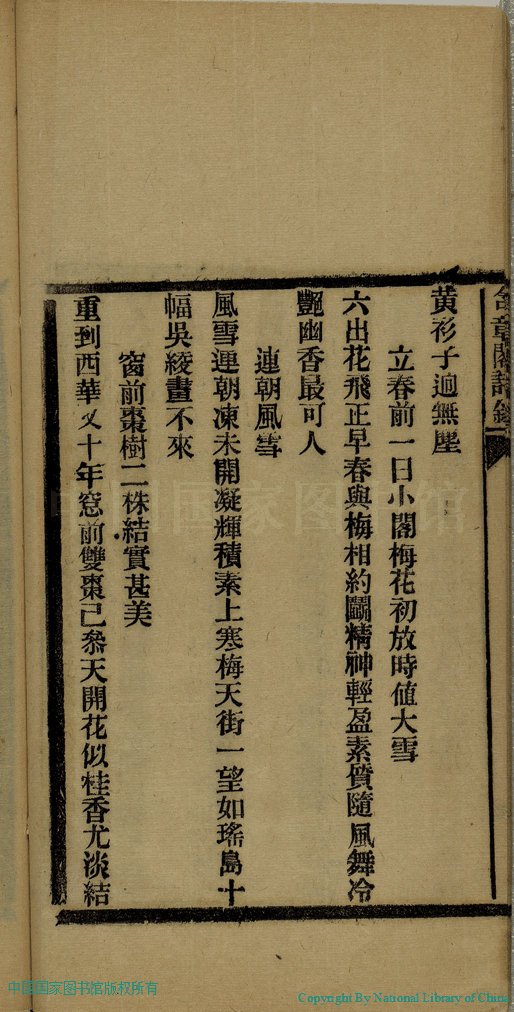 含章閣詩鈔
黄衫子逈無塵
立春前一日小閣梅花初放時値大雪
六出花飛正早春與梅相約鬭精神輕盈素質隨風舞冷
艷幽香最可人
連朝風雪
風雪連朝凍未開凝輝積素上寒梅天街一望如瑤島十
幅吳綾畫不來
窗前棗樹二株結實甚美
重到西華又十年窓前雙棗已叅天開花似桂香尤淡結
中国国家图书馆
中国国家图书馆版权所有
Copyright By National Library of China